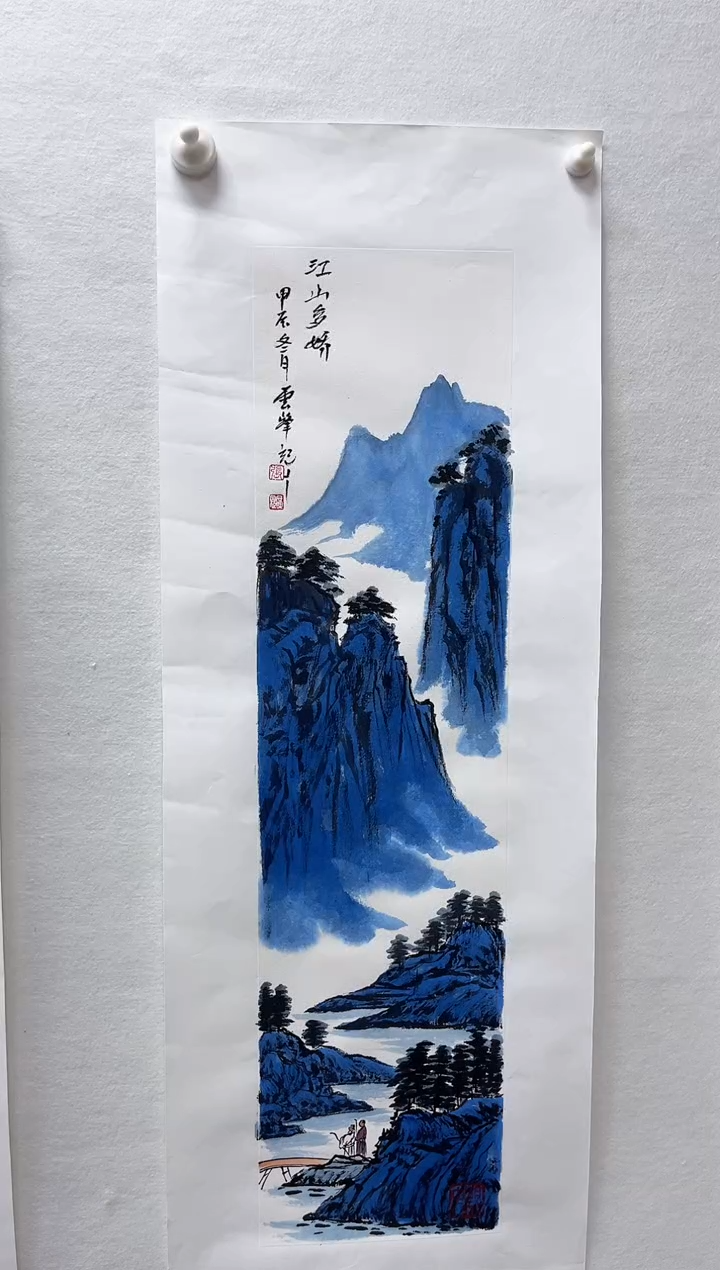 江山多娇
甲辰冬月雲峰记